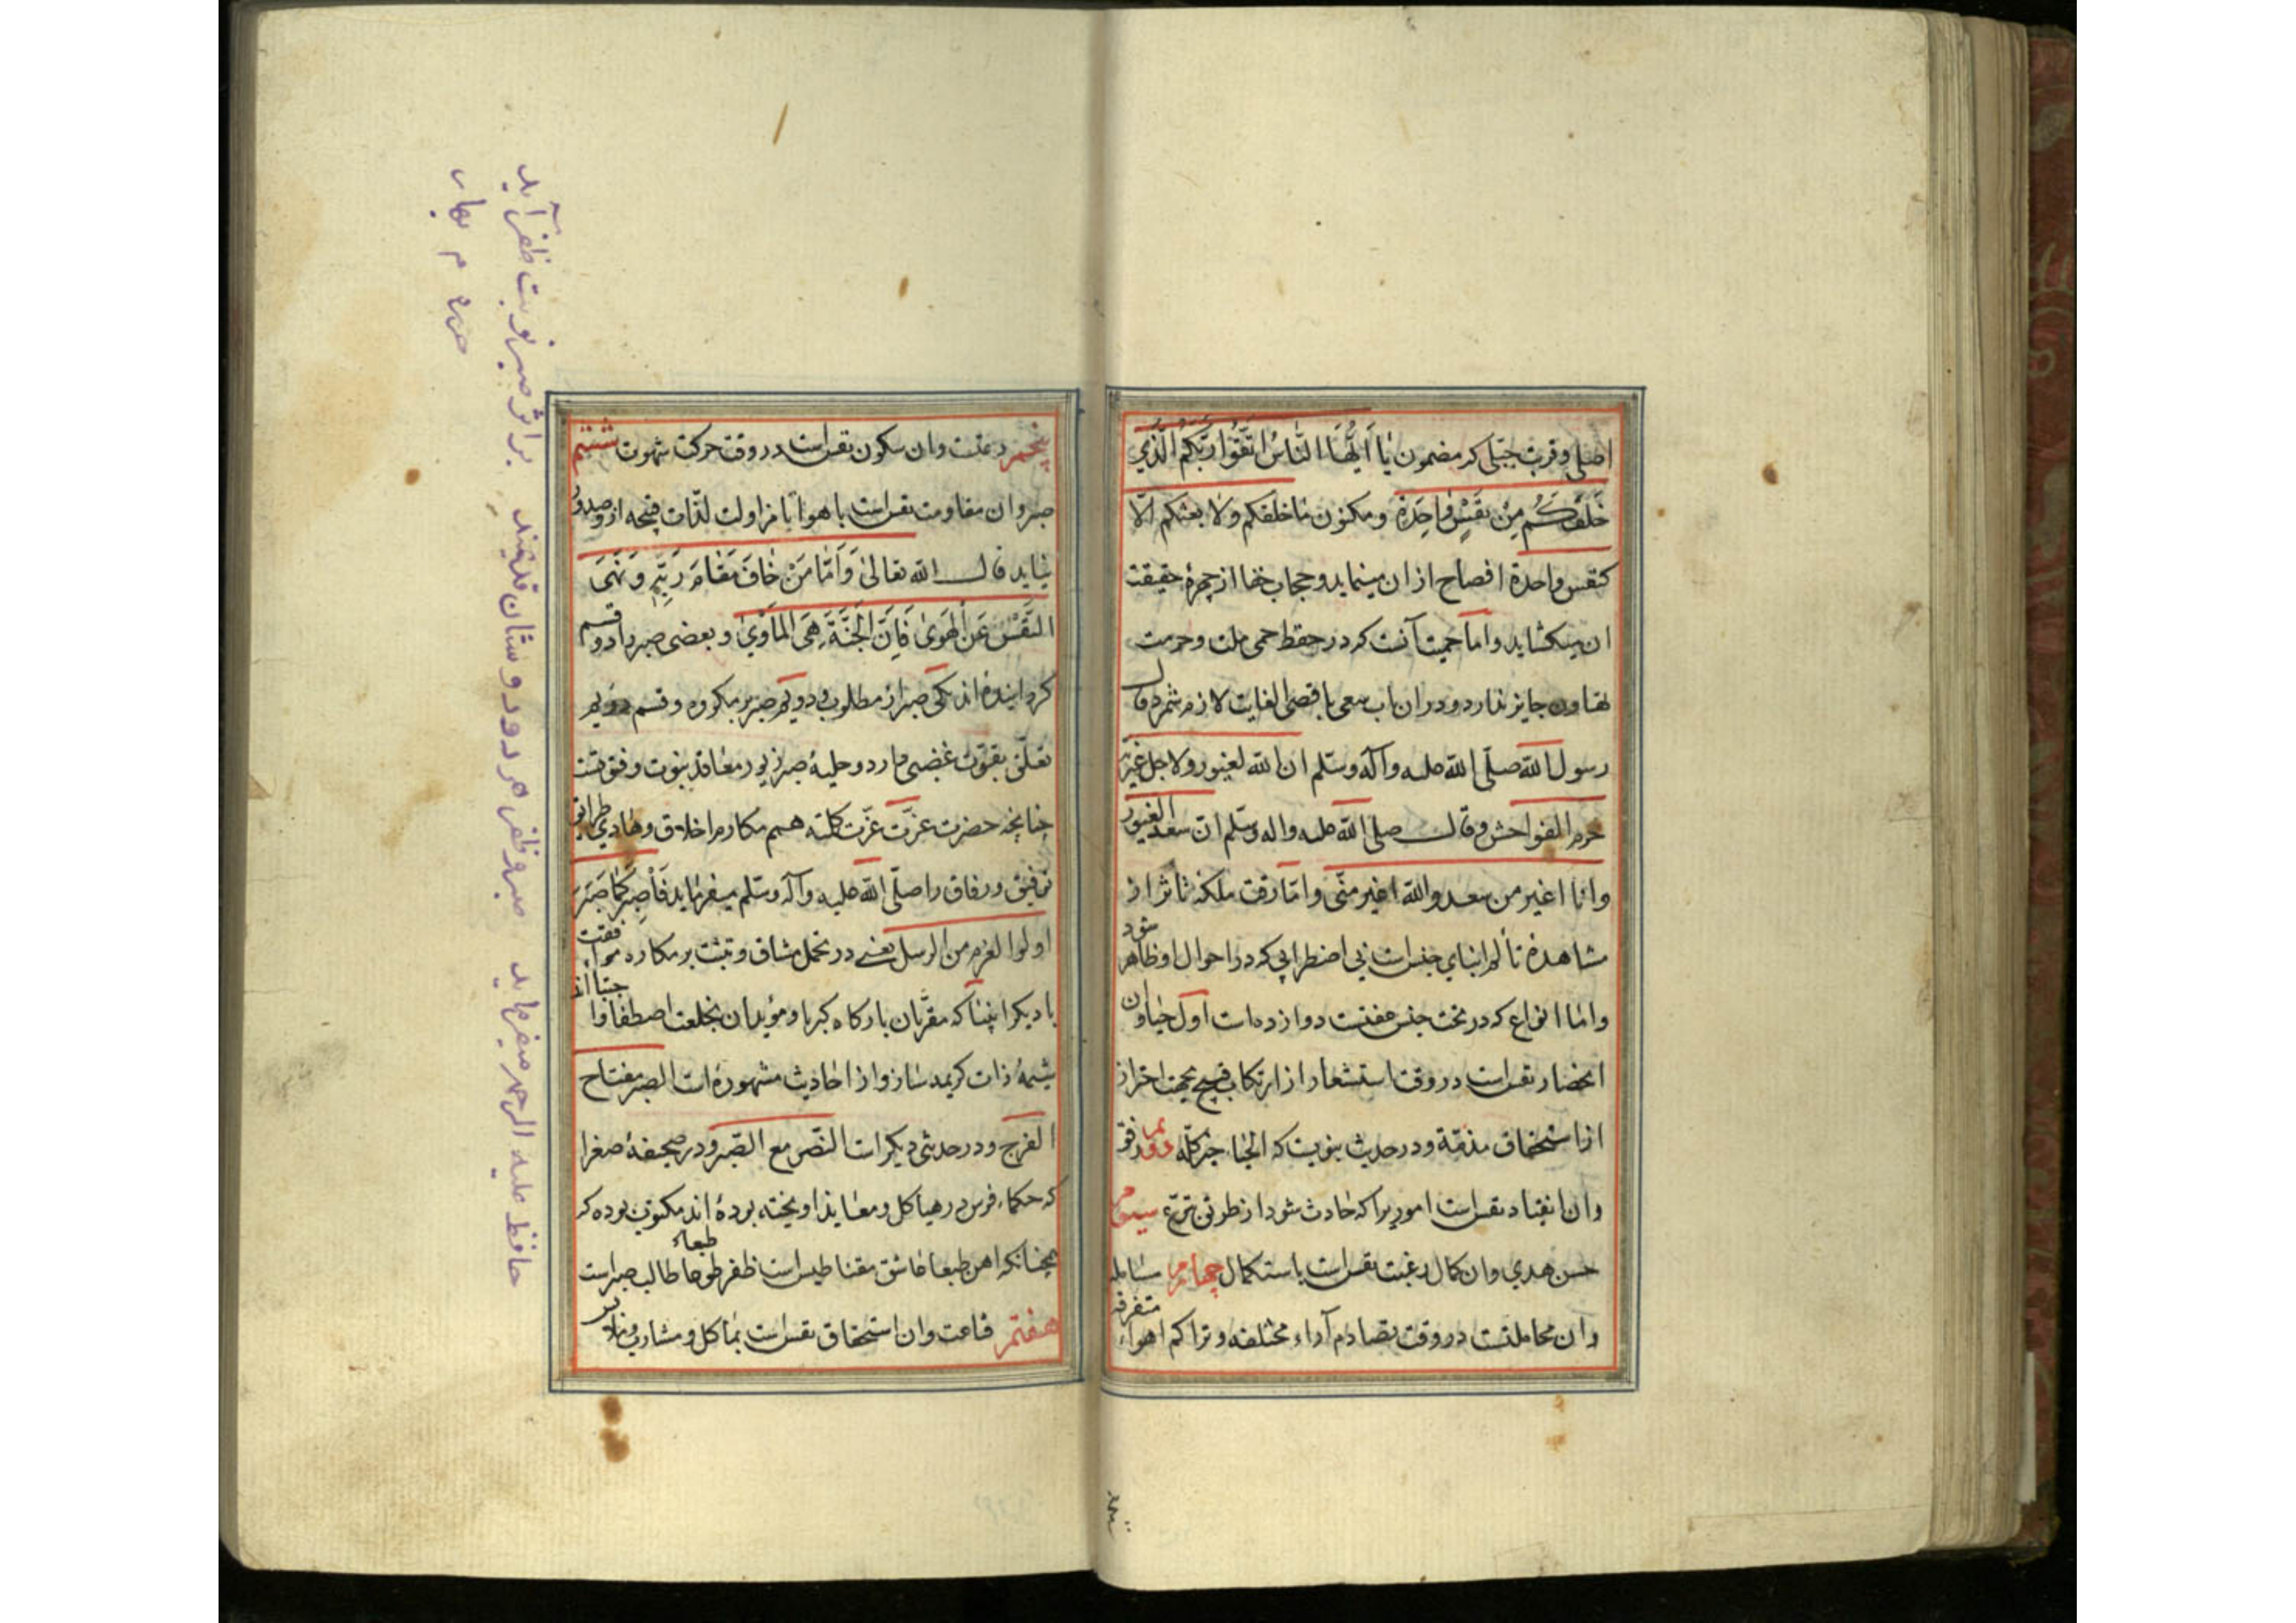 اصلی و قربت جبلی که مضمون یَا أَیُّهَا النَّاسُ اتَّقُوا رَبَّکُمُ الَّذِي
خَلَقَکُم مِنْ نَفْسٍ وَاحِدَةٍ و مکنون ما خلقکم ولا بعثکم الّا
کنفس واحدة افصاح از ان مینماید و حجاب خفا از چهرهٔ حقیقت
ان میکشاید و اما حمیت آنست که در حفظ حمی ملت و حرمت
تهاون جایز ندارد و در ان باب سعی باقصی الغایت لازم شمرد قال
رسول الله صلّی الله علیه وآله وسلّم ان الله لغیور ولاجل غیرته
حرم الفواحش و قال صلی الله علیه واله وسلّم ان سعد الغیور
وانا اغیر من سعد والله اغیر منّی و امّا رقت ملکهٔ تاثر از
مشاهدهٔ تألم ابنای جنس است بی اضطرابی که در احوال او ظاهر شود
و امّا انواع که در تحت جنس عفتست دوازده است اول حیا و ان
انحصار نفس است در وقت استشعار از ارتکاب قبیح بجهت احتراز
از استحقاق مذمّة و در حدیث نبویست که الحیاء خیر کلّه دوم رفق
و ان انقیاد نفس است اموری را که حادث شود از طریق تبرّع سیوم
حسن هدی و ان کمال رغبت نفس است باستکمال چهارم مسالمه
و ان مجاملتست در وقت تصادم آراء مختلفه و تراکم اهواء متفرقه
پنجم دعتست و ان سکون نفس است در وقت حرکت شهوت ششم
صبر و ان مقاومت نفس است با هوا تا مزاولت لذّات قبیحه از و صدور
نیابد قال الله تعالیٰ وَأَمَّا مَنْ خَافَ مَقَامَ رَبِّهِ وَنَهَى
النَّفْسَ عَنِ الْهَوىٰ فَإِنَّ الْجَنَّةَ هِيَ الْمَأْوىٰ و بعضی صبر را دو قسم
کردانیده اند یکی صبر از مطلوب و دویم صبر بر مکروه و قسم دویم
تعلّق بقوّت غضبی دارد و حلیهٔ صبر زیور معاقد نبوت و فتوتست
چنانچه حضرت عزّت عزّت کلمته متمم مکارم اخلاق و هادی طرایق
توفیق و رفاق را صلّی الله علیه وآله وسلّم میفرماید فَاصْبِرْ کَمَا صَبَرَ
اولوا العزم من الرسل یعنی در تحمل مشاق و تثبت بر مکاره موافقت
با دیکر انبیا که مقرّبان بارکاه کبریا و مؤیدان بخلعت اصطفا و اجتبا اند
شیمهٔ ذات کریمه ساز و از احادیث مشهوره است الصبر مفتاح
الفرج و در حدیثی دیکر است النّصر مع الصّبر و در صحیفهٔ صغرا
که حکماء فرس در هیاکل و معابد اویخته بوده اند مکتوب بوده که
همچنانکه اهن طبعا عاشق مقناطیس است ظفر طوعا طالب صبر است
طبعاً
هفتم قناعت و ان استحقاق نفس است بماکل و مشارب و ملابس
حافظ علیه الرحمه میفرماید صبر و ظفر هر دو دوستان قدیمند بر اثر صبر نوبت ظفر آید